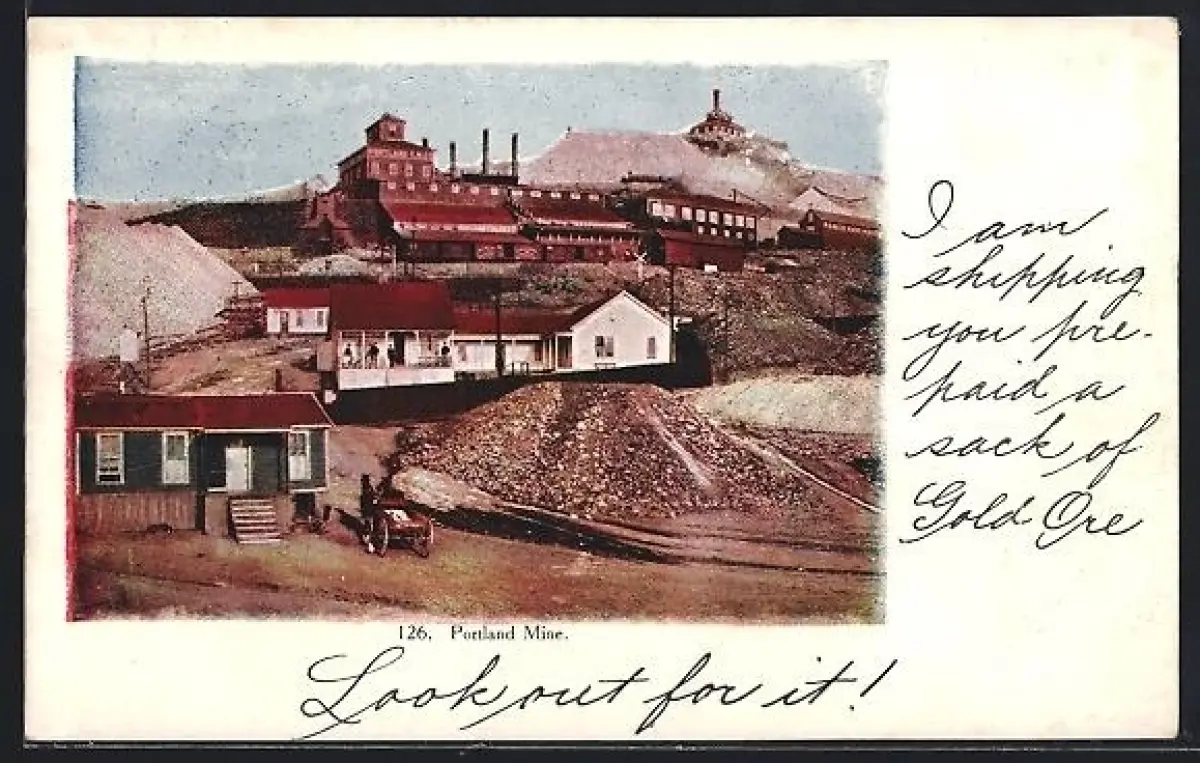 PORTLAND G.M.
I am
shipping
you pre-
paid a
sack of
Gold Ore
126. Portland Mine.
Look out for it!